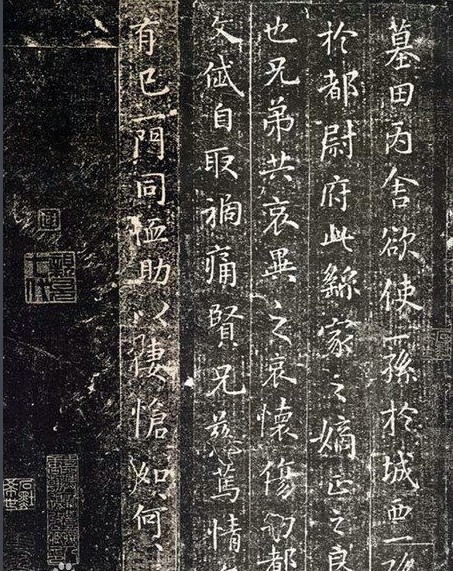 墓田丙舍欲使一孫於城西一孫
於都尉府此繇家之嫡正之良
也兄弟共哀異之哀懷傷切都
文岱自取禍痛賢兄慈篤情
有已一門同恤助以悽愴如何